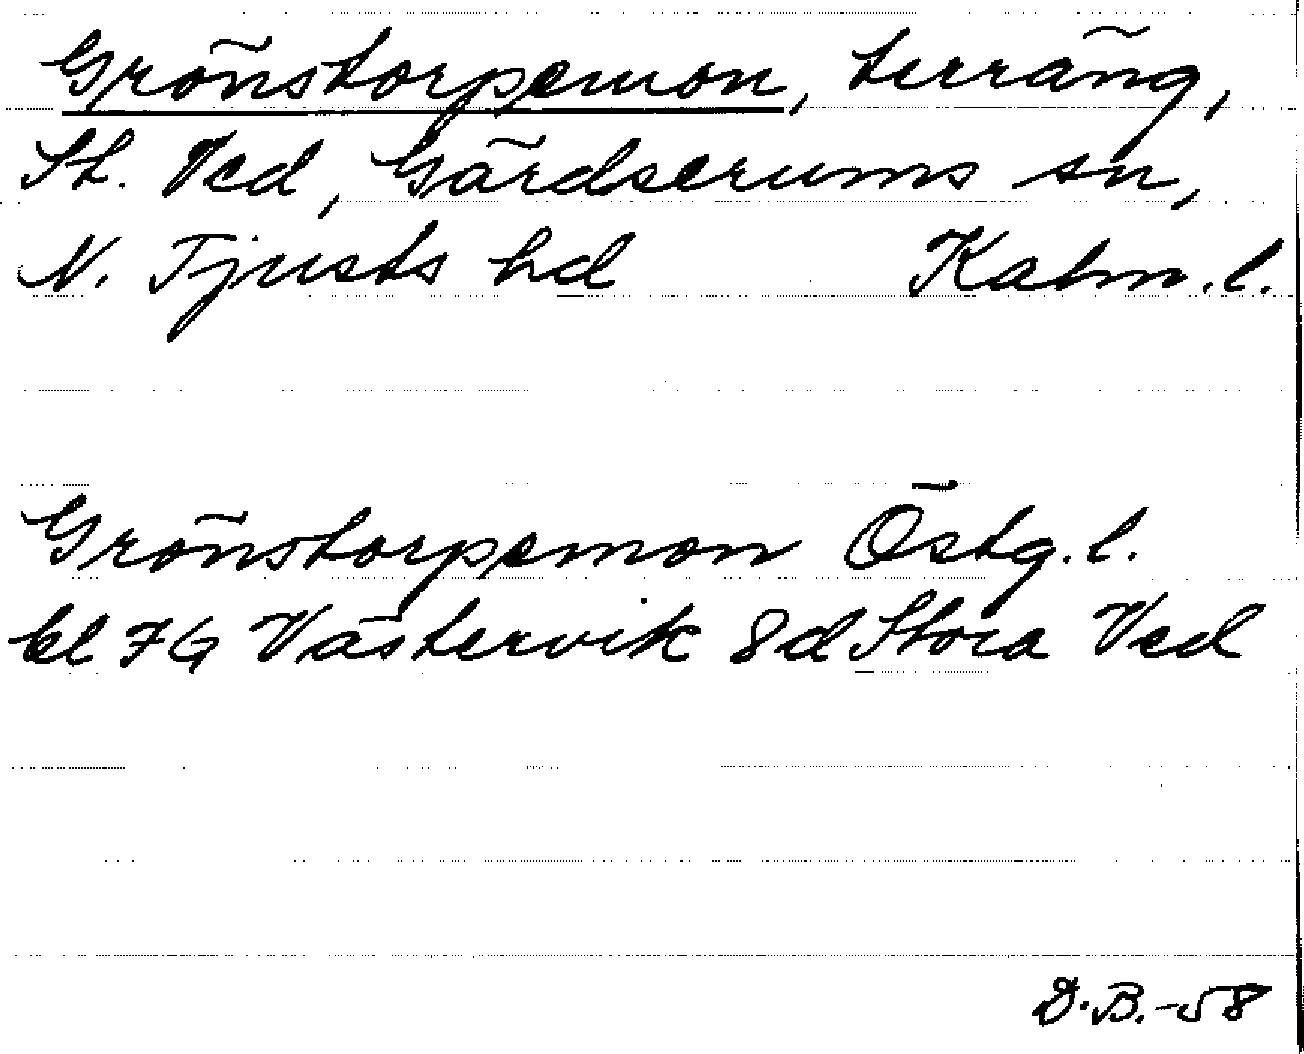 Grönstorpemon, terräng,
St. Ved, Gärdserums sn,
N. Tjusts hd Kalm.l.
Grönstorpemon Östg.l.
bl 7G Västervik 8d Stora Ved
D.B.-58